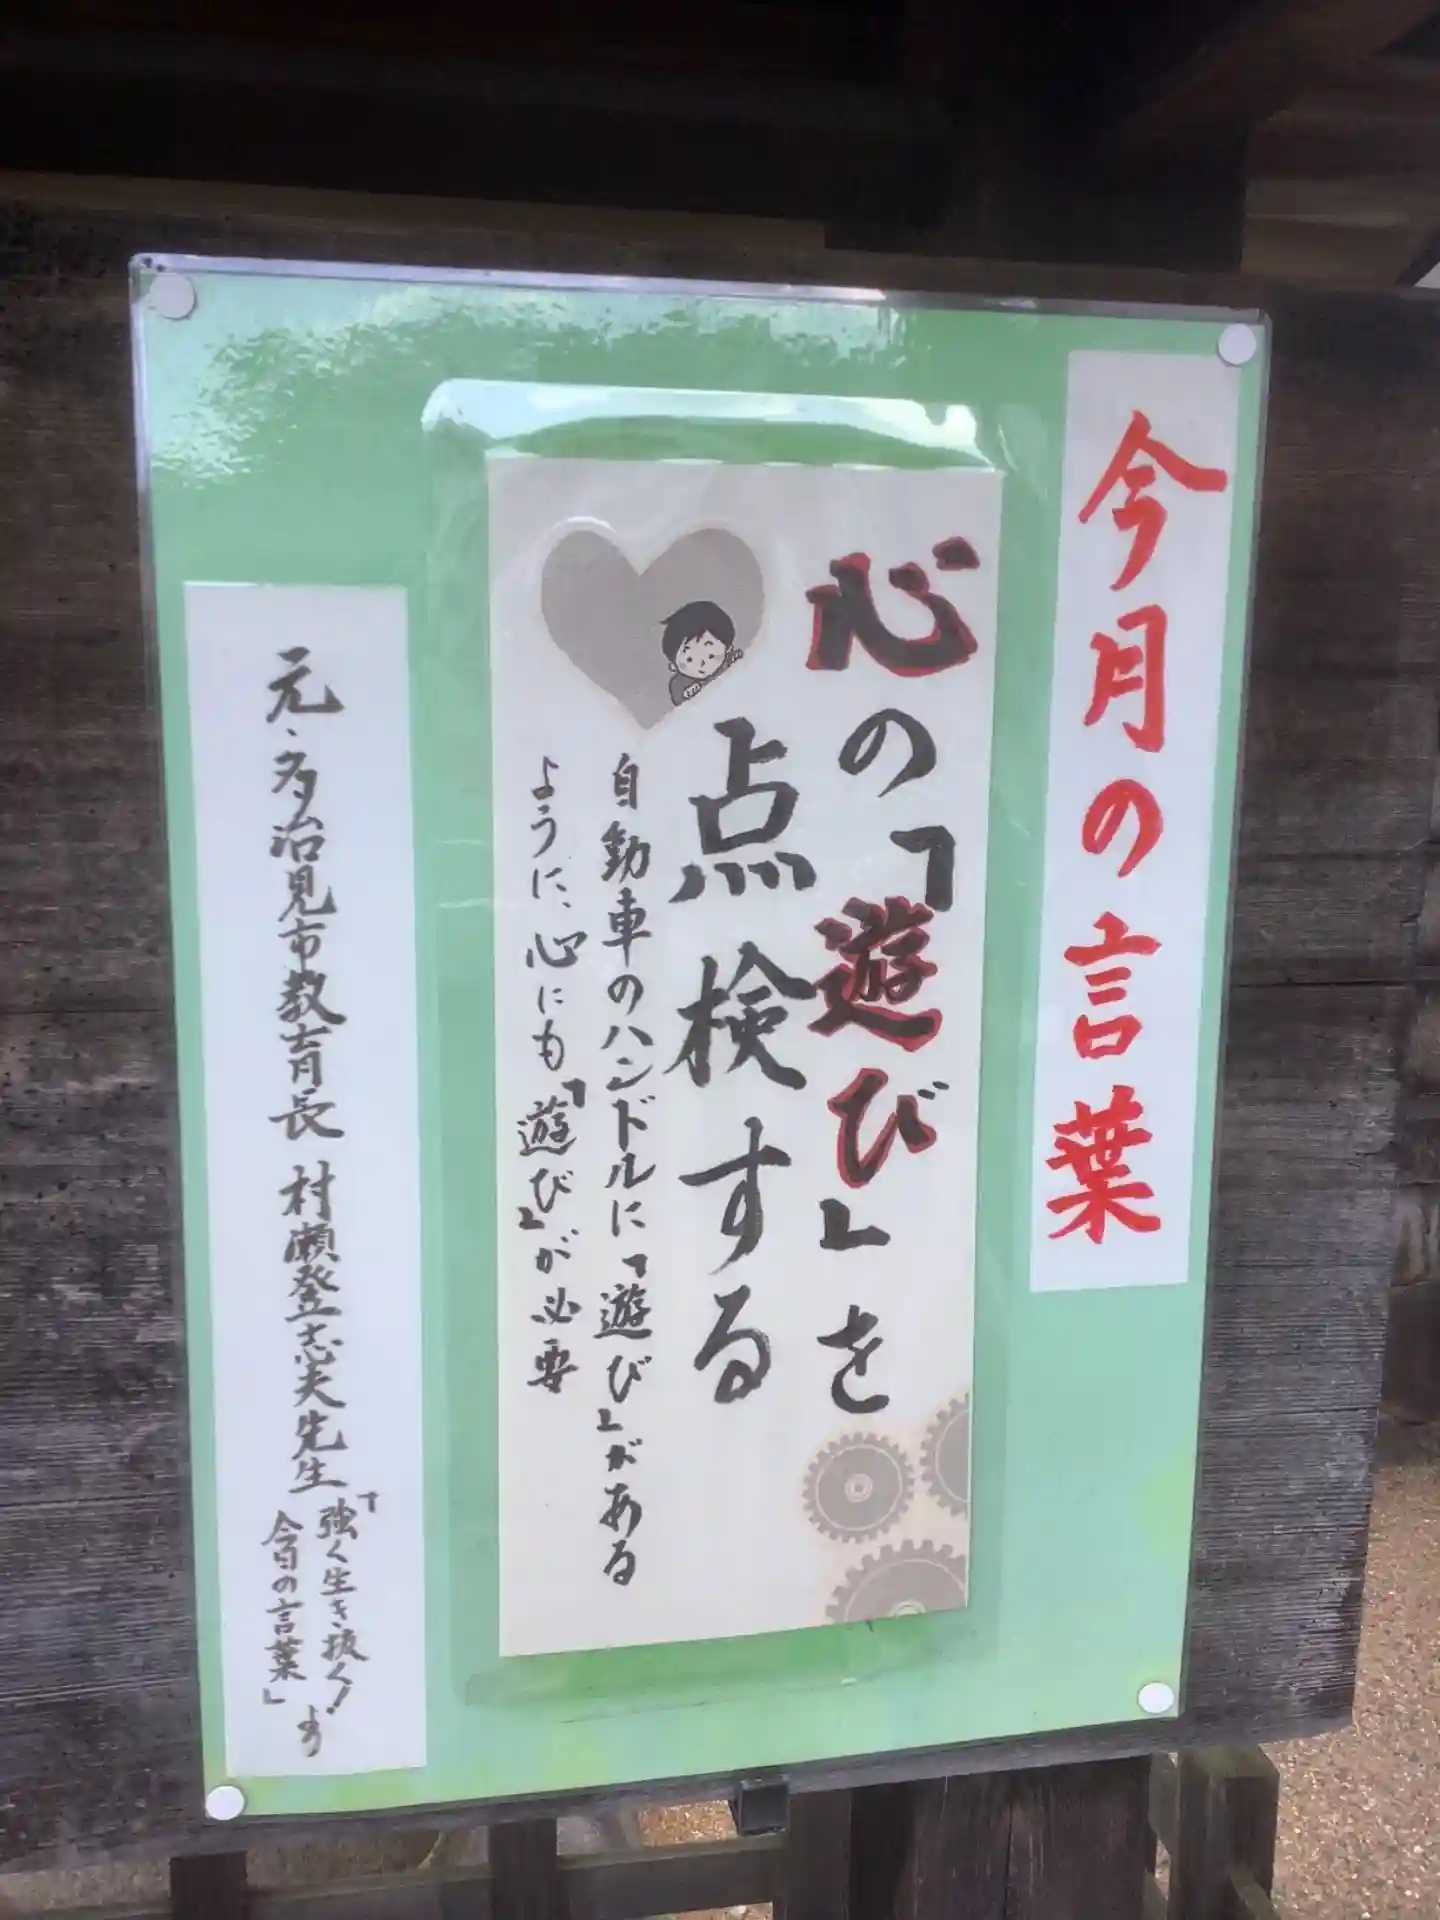 今月の言葉
心の「遊び」を
点検する
自動車のハンドルに「遊び」がある
ように、心にも「遊び」が必要
元、多治見市教育長 村瀬登志夫先生
「強く生き抜く!
今日の言葉」より